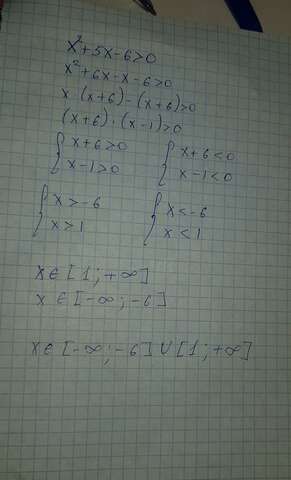 x²+5x-6>0
x²+6x-x-6>0
x·(x+6)-(x+6)>0
(x+6)·(x-1)>0
{x+6>0 {x+6<0
{x-1>0 {x-1<0
{x>-6 {x<-6
{x>1 {x<1
x∈[1;+∞]
x∈[-∞;-6]
x∈[-∞;-6]∪[1;+∞]